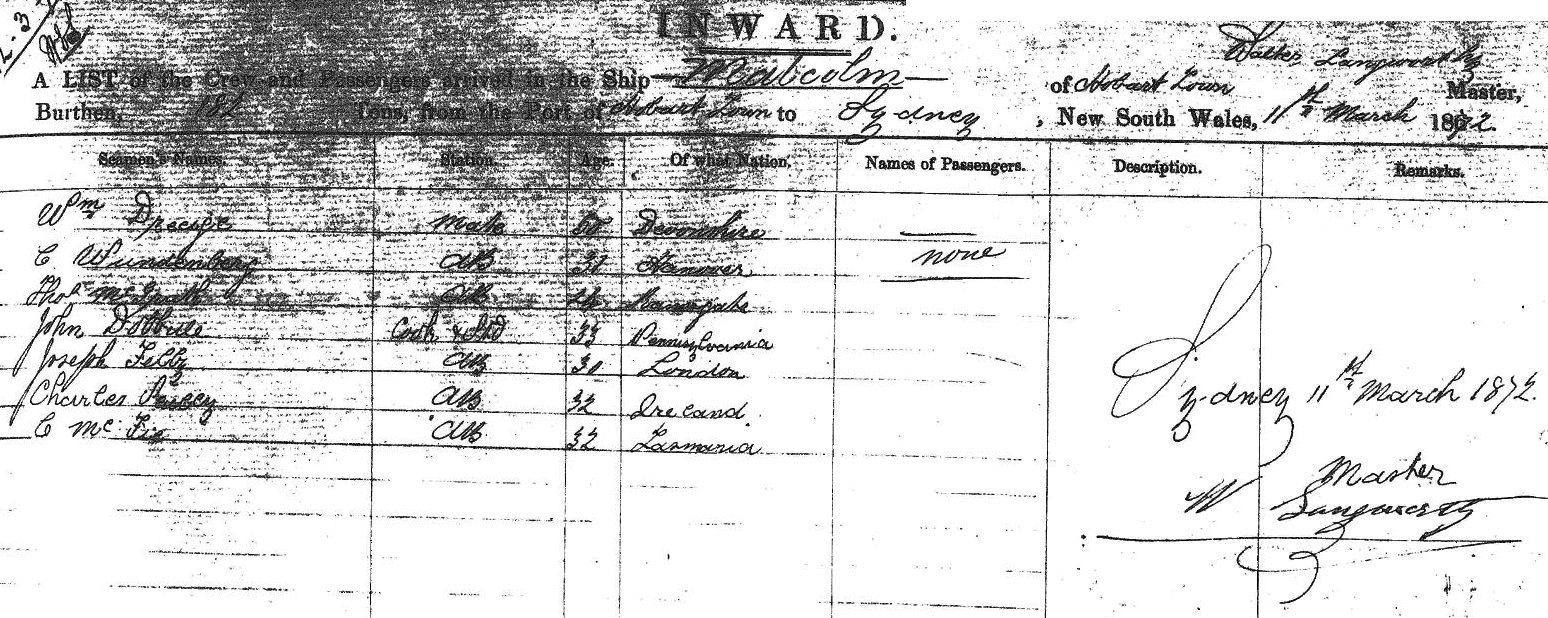 INWARD.
Walter Langworthy
A LIST of the Crew and Passengers arrived in the Ship Malcolm of Hobart Town Master,
Burthen, 182 Tons, from the Port of Hobart Town to Sydney, New South Wales, 11th March 1872.
Seamen's Names. Station. Age. Of what Nation. Names of Passengers. Description. Remarks.
Wm Mate Devonshire
C Wundenberg AB 30 Hanover none
Thos AB Ramsgate
John Cook & Std 33 Pennsylvania
Joseph AB 30 London
Charles AB 32 Ireland
C Mc Fie AB 32 Tasmania
Sydney 11th March 1872.
Master
W Langworthy